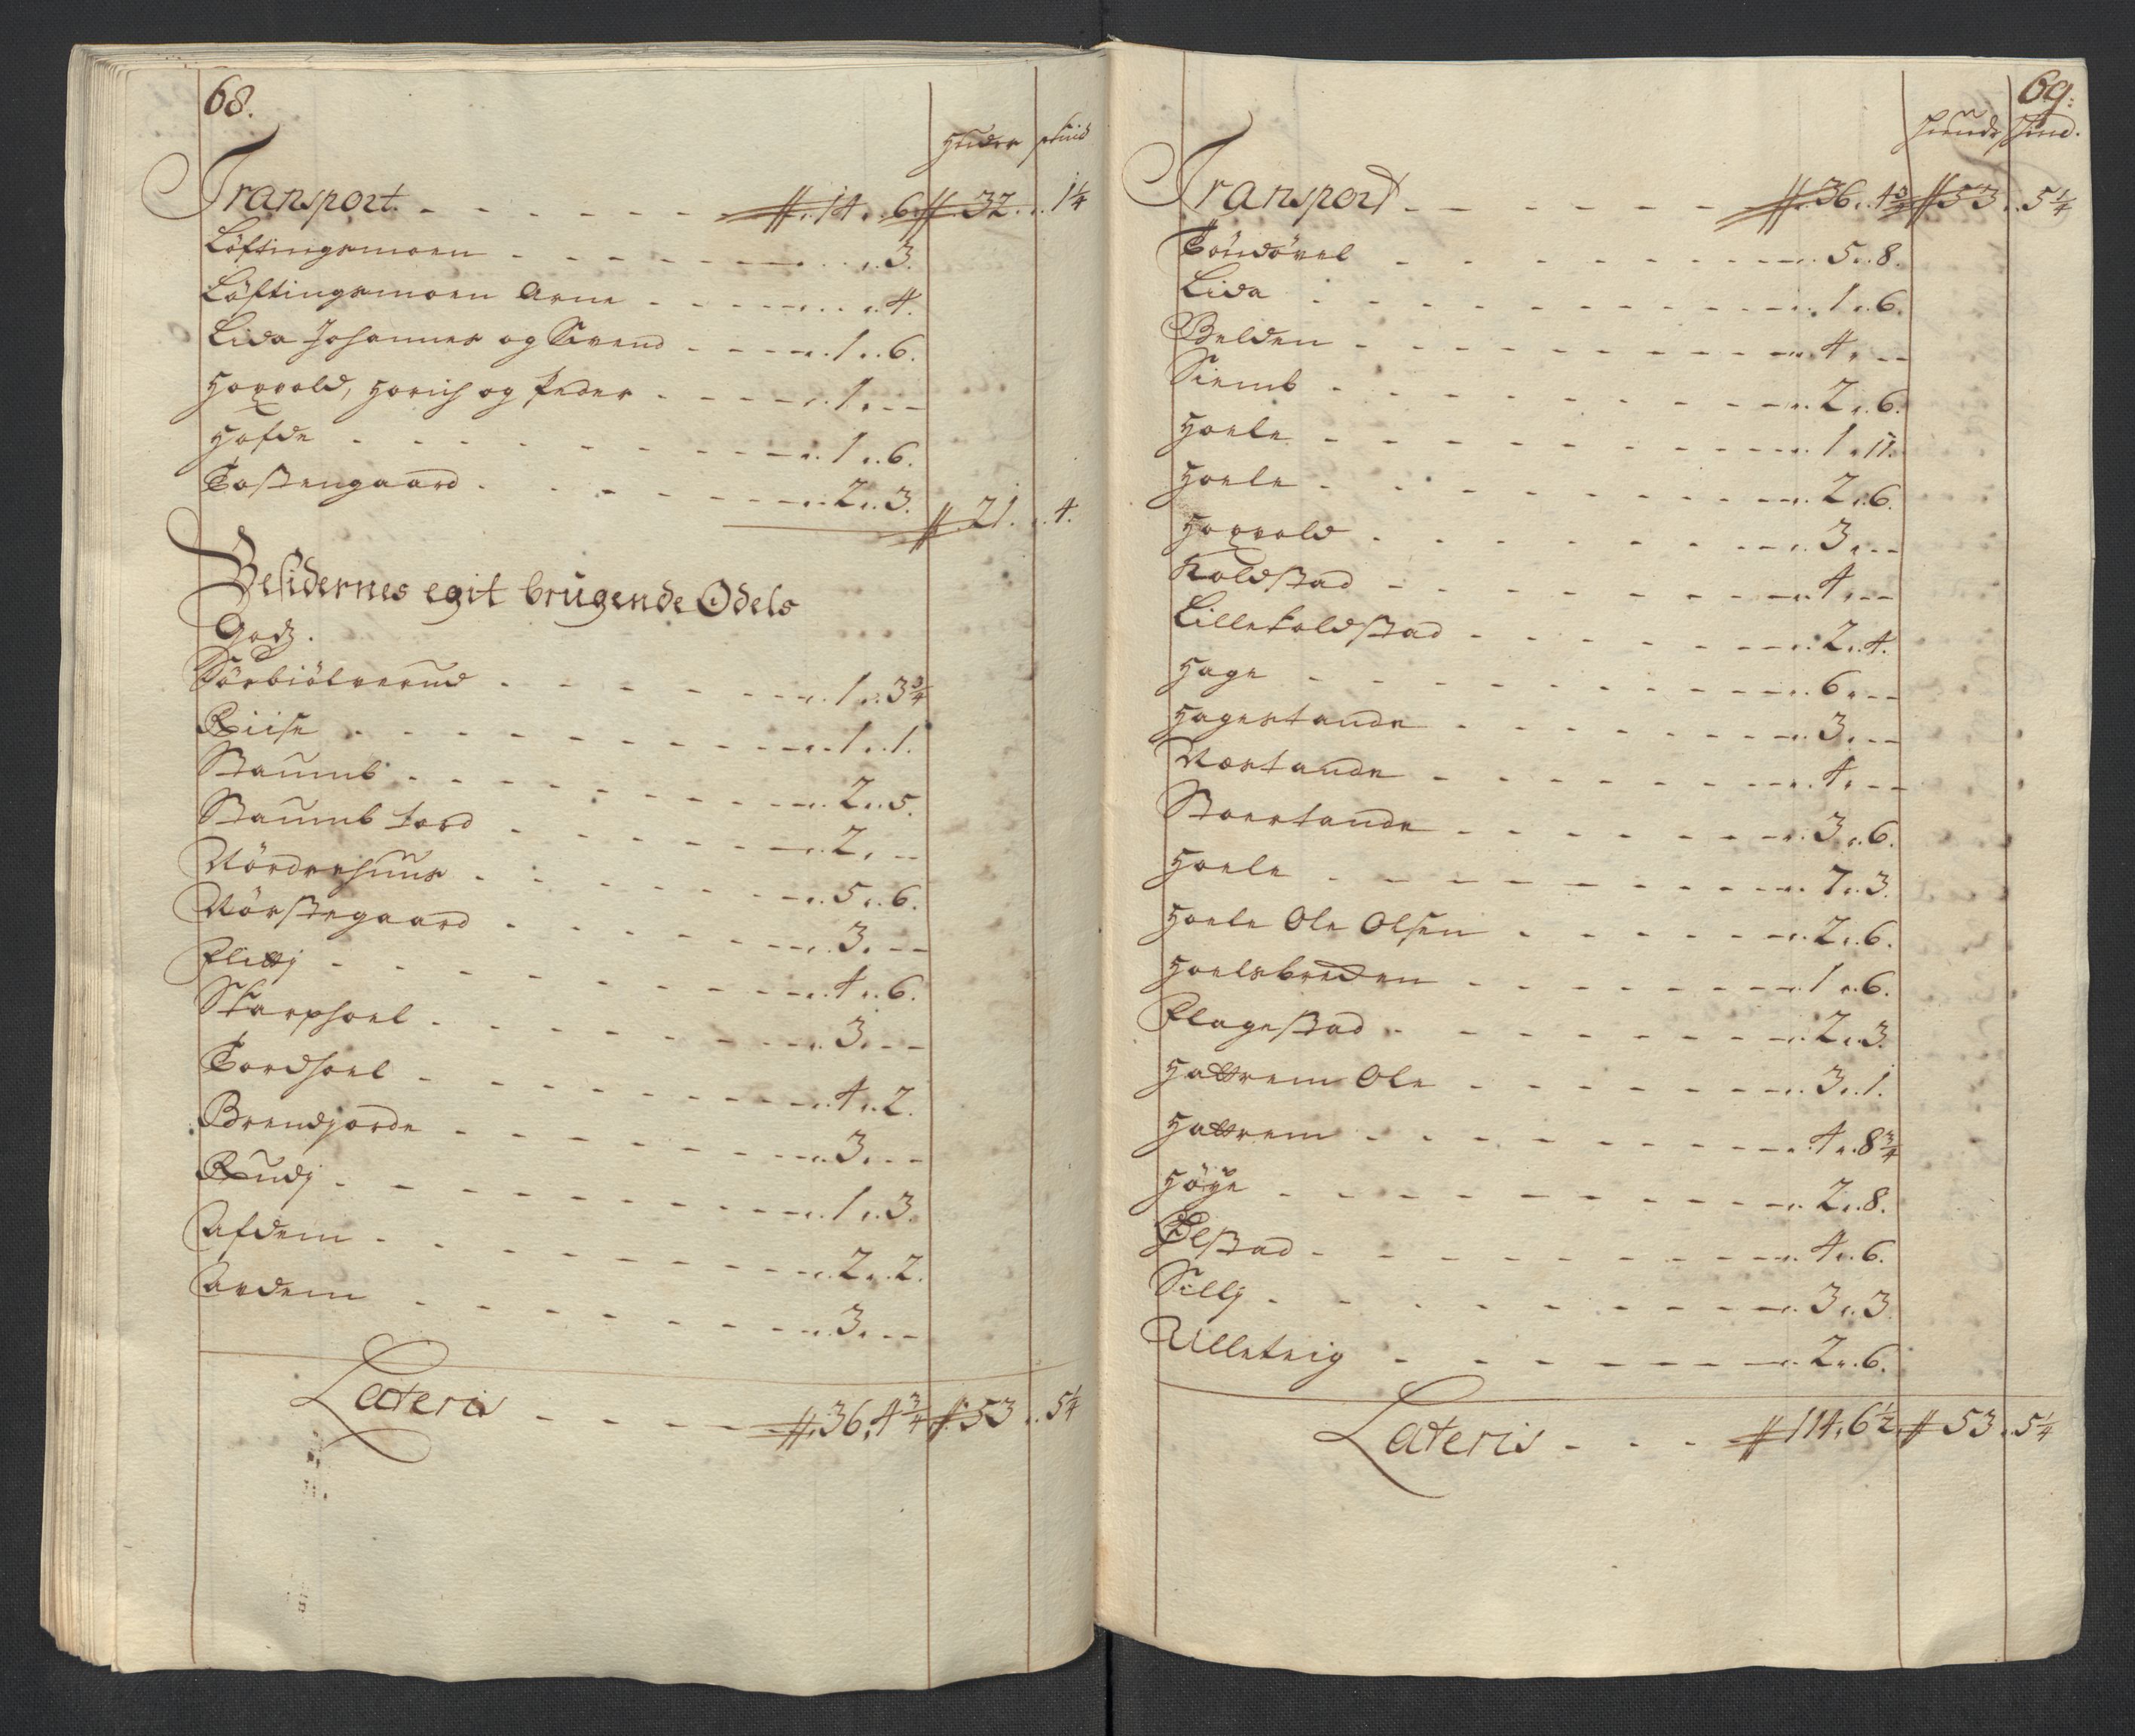 68.
Huder skind
Transport. 14. 6. 32. 1¼
Löftingsmoen 3.
Löftingsmoen Arne 4.
Lida Johannes og Svend 1. 6.
Horvold, Horich og Peder 1. -
Hofde 1. 6.
Tostengaard 2. 3. 21. 4.
Besidernes egit brugende Odels
Godz.
Sörbiölverud 1. 3¾
Riise 1. 1.
Staumb 2. 5.
Staumb Tord 2. -
Nördrehuus 5. 6.
Nörstegaard 3. -
Flittj 4. 6.
Skarphoel 3. -
Tordhoel 4. 2.
Brendjorde 3. -
Rudj 1. 3.
Afdem 2. 2.
Ardem 3. -
Lateris 36. 4¾ 53. 5¼
69.
Huude skind.
Transport 36. 4¾ 53. 5¼
Töndövel 5. 8.
Lida 1. 6.
Belden 4. -
Siemb 2. 6.
Hoele 1. 11.
Hoele 2. 6.
Horvold 3. -
Koldstad 4. -
Lillekoldstad 2. 4.
Hage 6. -
Hagestande 3. -
Norstande 4. -
Storstande 3. 6.
Hoele 7. 3.
Hoele Ole Olsen 2. 6.
Hoelsbreden 1. 6.
Flagestad 2. 3.
Hattrem Ole 3. 1.
Hattrem 4. 8¾
Höye 2. 8.
Ølstad 4. 6.
Sillj 3. 3.
Ulleteig 2. 6.
Lateris 114. 6½ 53. 5¼